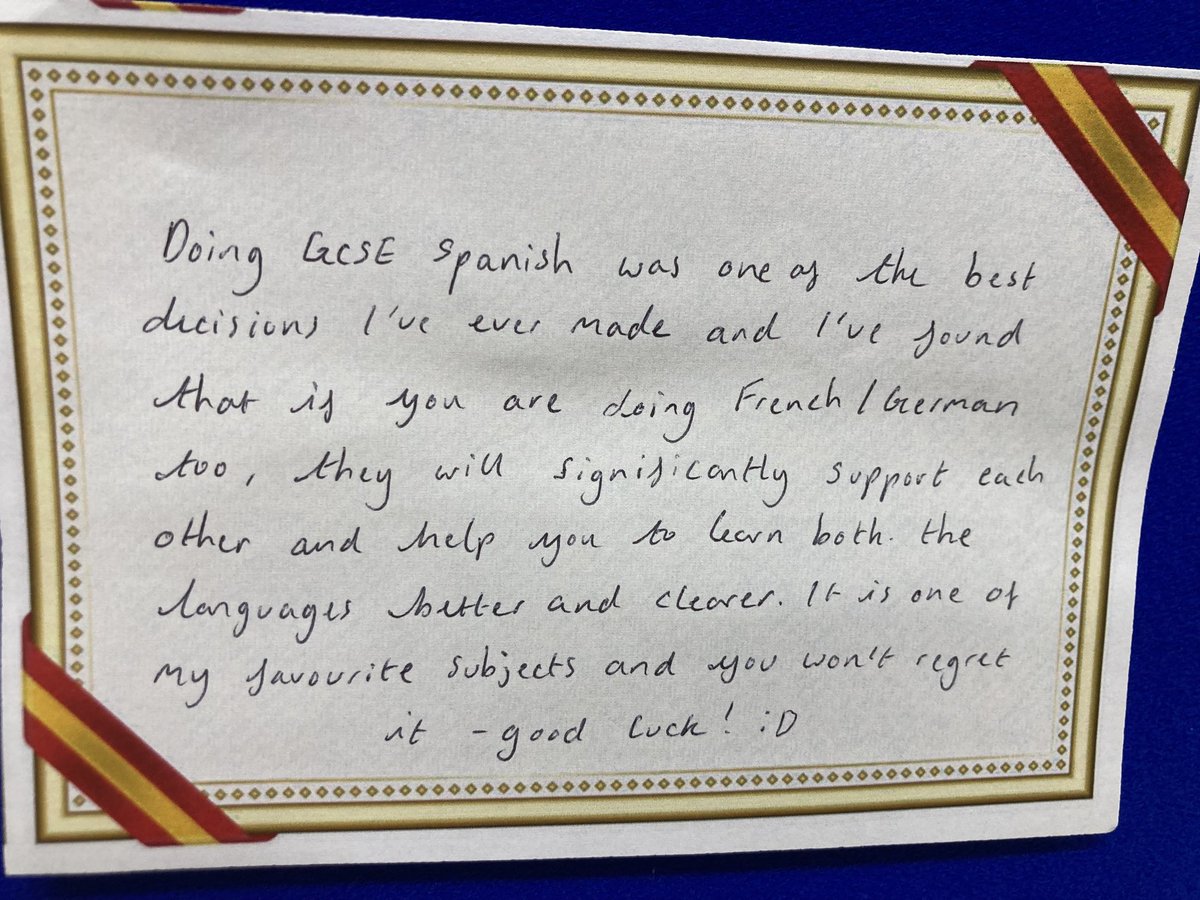 Doing GCSE Spanish was one of the best
decisions I've ever made and I've found
that if you are doing French/German
too, they will significantly support each
other and help you to learn both. the
languages better and clearer. It is one of
my favourite subjects and you won't regret
it - good luck! :D